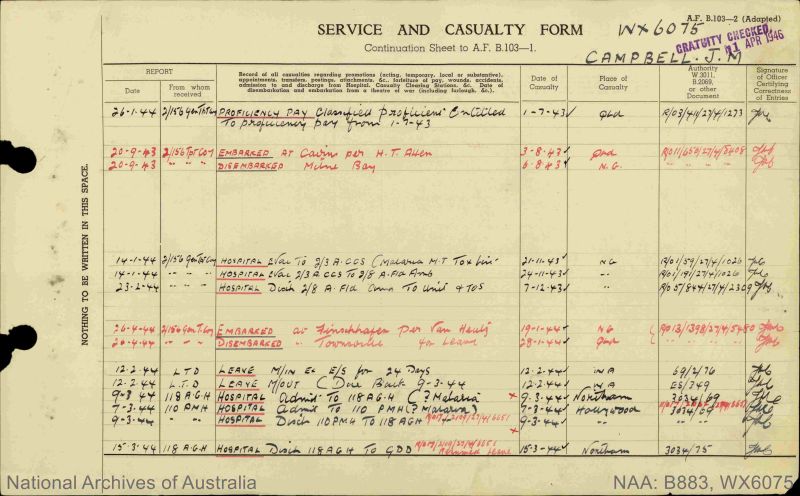 SERVICE AND CASUALTY FORM
A.F. B.103—2 (Adapted)
Continuation Sheet to A.F. B.103—1.
WX6075
GRATUITY CHECKED
11 APR 1946
CAMPBELL. J. M
NOTHING TO BE WRITTEN IN THIS SPACE.
REPORT
Date
From whom received
Record of all casualties regarding promotions (acting, temporary, local or substantive), appointments, transfers, postings, attachments, &c., forfeiture of pay, wounds, accidents, admission to and discharge from Hospital, Casualty Clearing Stations, &c. Date of disembarkation and embarkation from a theatre of war (including furlough, &c.).
Date of Casualty
Place of Casualty
Authority W.3011, B.2069, or other Document
Signature of Officer Certifying Correctness of Entries
26-1-44 2/156 Gen Tpt Coy PROFICIENCY PAY Classified Proficient Entitled 1-7-43 Qld R/03/411/27/4/1273
To proficiency pay from 1-7-43
20-9-43 2/156 Tpt Coy EMBARKED At Cairns per H.T. Allen 3-8-43 Qld R/011/656/27/4/5408
20-9-43 " " " DISEMBARKED Milne Bay 6-8-43 N.G.
14-1-44 2/156 Gen Tpt Coy HOSPITAL Evac To 2/3 A.CCS (Malaria M.T 21-11-43 NG R/01/59/27/4/1026
14-1-44 " " " HOSPITAL Evac 2/3 A CCS To 2/8 A. Fld Amb 24-11-43 " R/01/191/27/4/1026
23-2-44 " " HOSPITAL Disch 2/8 A. Fld Amb To Unit & TOS 7-12-43 " R/05/844/27/4/2309
26-4-44 2/156 Gen T. Coy EMBARKED at Finschhafen per Van Heutz 19-1-44 NG R/013/1398/27/4/5480
26-4-44 " " DISEMBARKED " Townsville for Leave 28-1-44 Qld
12-2-44 LTD LEAVE M/IN Ex E/S for 24 Days 12-2-44 WA 69/2/76
12-2-44 L.T.D LEAVE M/OUT (Due Back 9-3-44 12-2-44 WA ES/349
9-3-44 118 AGH HOSPITAL Admit To 118 A.G.H (? Malaria) 9-3-44 Northam 3034/69
7-3-44 110 PMH HOSPITAL Admit To 110 PMH (? Malaria) 7-3-44 Hollywood 3034/69
9-3-44 " " HOSPITAL Disch 110 PMH To 118 AGH 9-3-44 " "
15-3-44 118 A.G.H HOSPITAL Disch 118 AGH To GDD 15-3-44 Northam 3034/75
National Archives of Australia
NAA: B883, WX6075